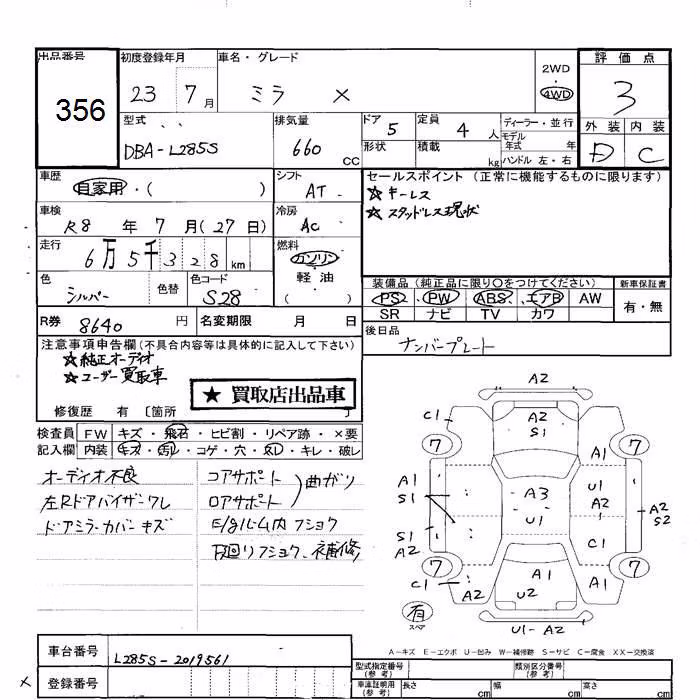 出品番号
356
初度登録年月
23 7 月
車名・グレード
ミラ X
2WD
4WD
評価点
3
外装 内装
D C
型式
DBA-L285S
排気量
660 CC
ドア 5
定員 4 人
形状
積載 kg
ディーラー・並行
モデル年式 年
ハンドル 左・右
車歴
自家用・( )
シフト
AT
車検
R8 年 7 月(27日)
冷房
AC
走行
6万5千328 km
燃料
ガソリン
軽油
( )
色
シルバー
色替
色コード
S28
R券 8640 円
名変期限 月 日
セールスポイント(正常に機能するものに限ります)
☆キーレス
☆スタッドレス現状
装備品(純正品に限り○をつけてください)
PS PW ABS エアB AW
SR ナビ TV カワ
新車保証書
有・無
後日品
ナンバープレート
注意事項申告欄(不具合内容等は具体的に記入して下さい)
☆純正オーディオ
☆ユーザー買取車
★ 買取店出品車
修復歴 有 〔箇所 〕
検査員記入欄
FW キズ・飛石・ヒビ割・リペア跡・×要
内装 キズ・汚レ・コゲ・穴・欠レ・キレ・破レ
オーディオ不良
左Rドアバイザーワレ
ドアミラーカバーキズ
コアサポート
ロアサポート
曲がり
E/gルーム内フショク
下廻りフショク、補修
A2
A2
S1
C1
7
7
A1
A1
S1
A1
U1
A2
A3
U1
A2
S2
S1
A2
C1
7
7
C1
A1
U2
A1
有
スペア
U1-A2
A-キズ E-エクボ U-凹み W-補修跡 S-サビ C-腐食 XX-交換済
車台番号
L285S-2019561
登録番号
型式指定番号(参考)
類別区分番号(参考)
車庫証明用(参考)
長さ cm
幅 cm
高さ cm